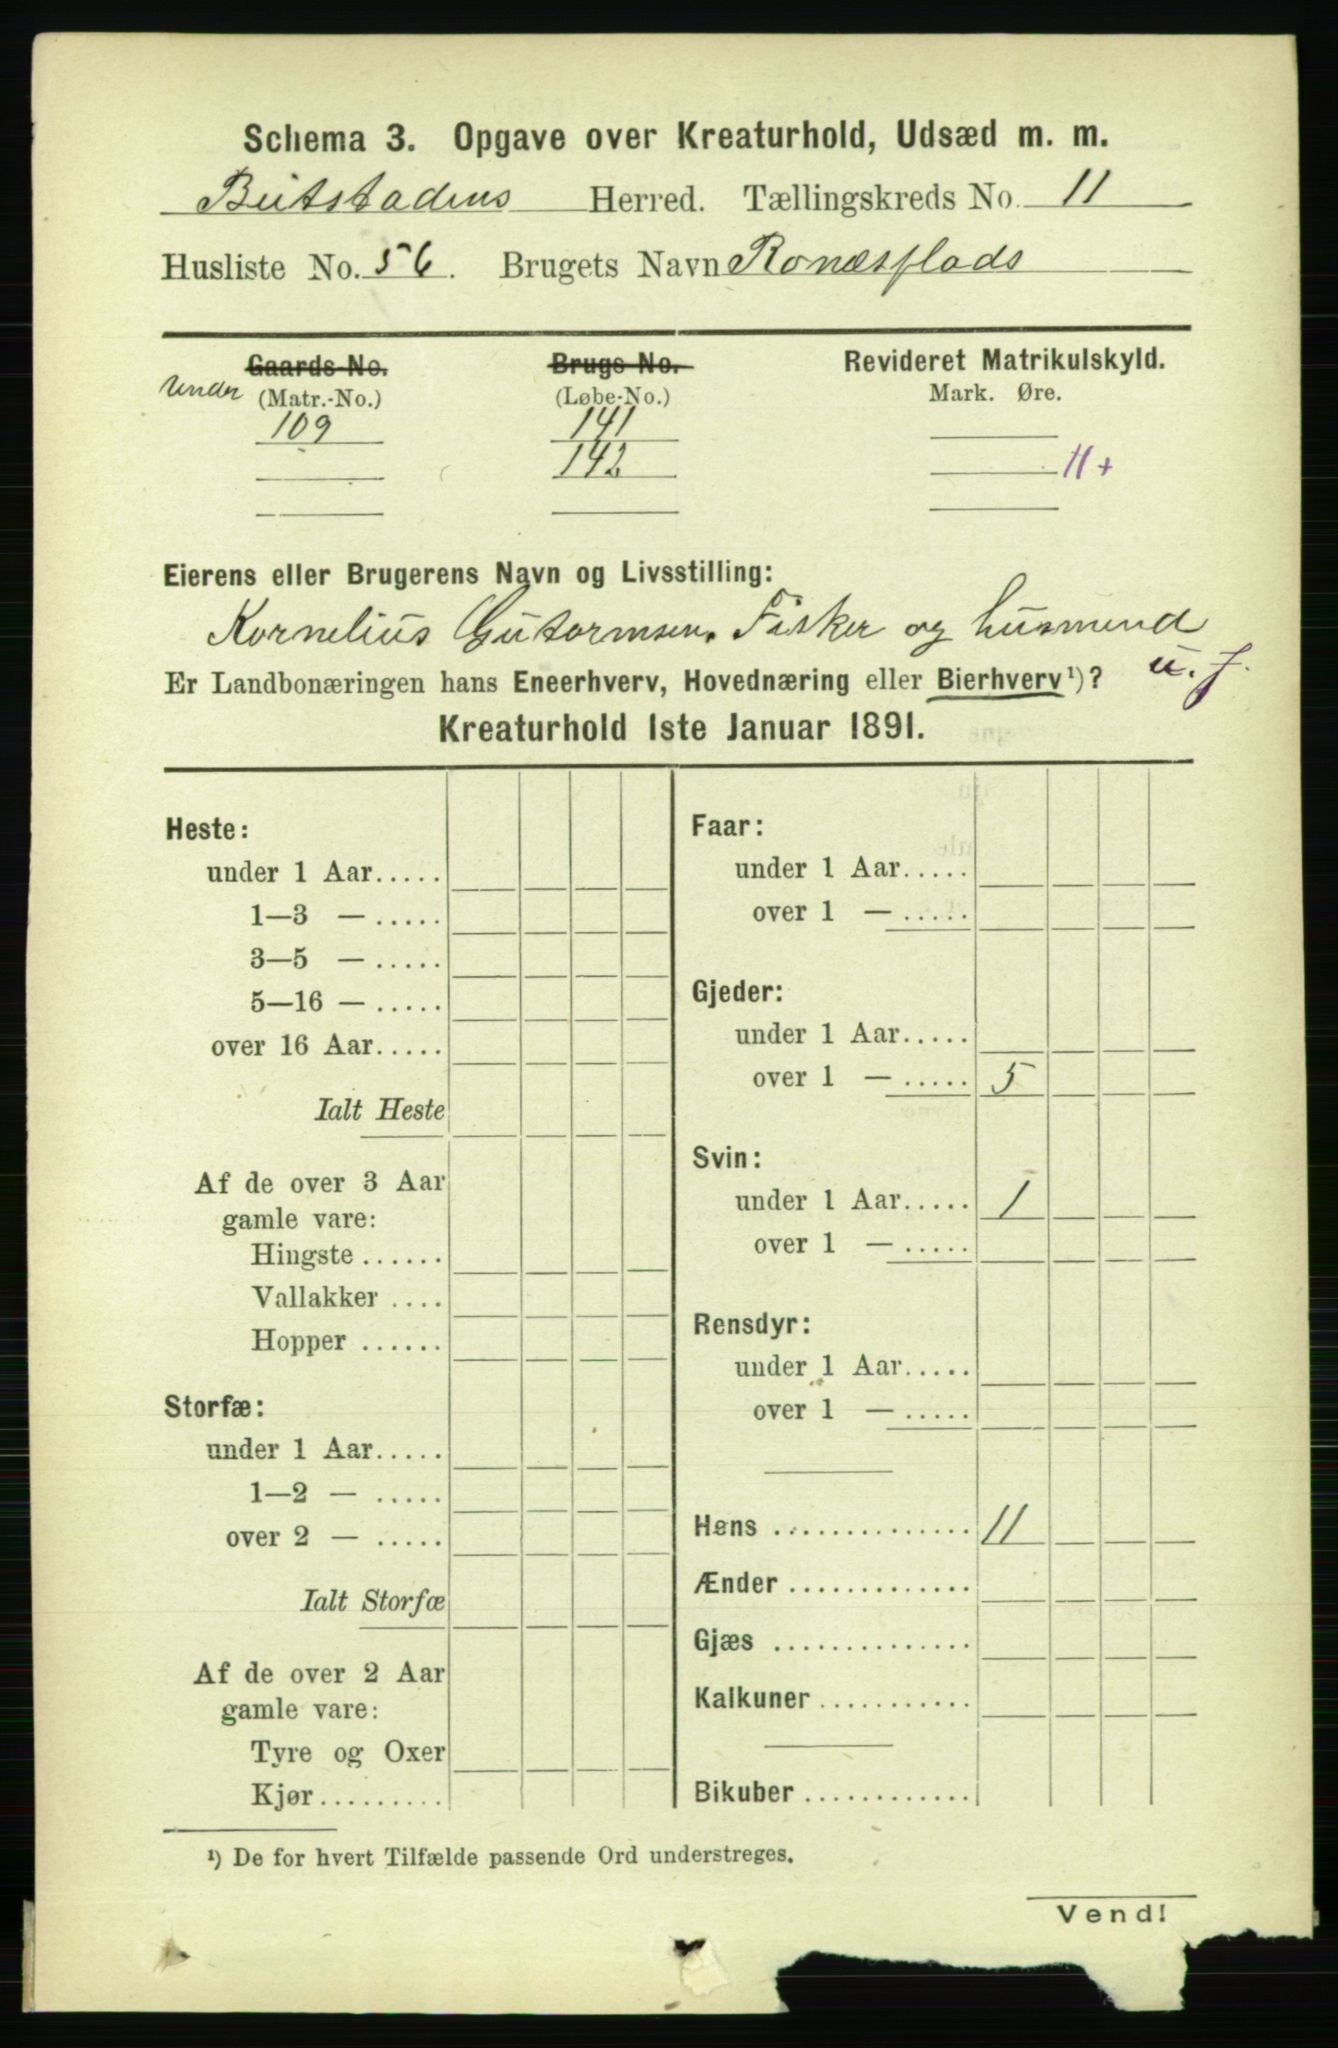 Schema 3. Opgave over Kreaturhold, Udsæd m. m.
Beitstadens Herred. Tællingskreds No. 11
Husliste No. 56. Brugets Navn Ronæsplads
Gaards-No. Brugs-No. Revideret Matrikulskyld.
Under (Matr.-No.) (Løbe-No.) Mark. Øre.
109 141
142 11+
Eierens eller Brugerens Navn og Livsstilling:
Kornelius Gutormsen. Fisker og husmend
u. J.
Er Landbonæringen hans Eneerhverv, Hovednæring eller Bierhverv¹)?
Kreaturhold 1ste Januar 1891.
Heste:
under 1 Aar.....
1—3 — .....
3—5 — .....
5—16 — .....
over 16 Aar.....
Ialt Heste
Af de over 3 Aar
gamle vare:
Hingste ......
Vallakker ....
Hopper ......
Storfæ:
under 1 Aar.....
1—2 — .....
over 2 — .....
Ialt Storfæ
Af de over 2 Aar
gamle vare:
Tyre og Oxer
Kjør.........
Faar:
under 1 Aar.....
over 1 — .....
Gjeder:
under 1 Aar.....
over 1 — ..... 5
Svin:
under 1 Aar..... 1
over 1 — .....
Rensdyr:
under 1 Aar.....
over 1 — .....
Høns .............. 11
Ænder .............
Gjæs ..............
Kalkuner...........
Bikuber ............
¹) De for hvert Tilfælde passende Ord understreges.
Vend!